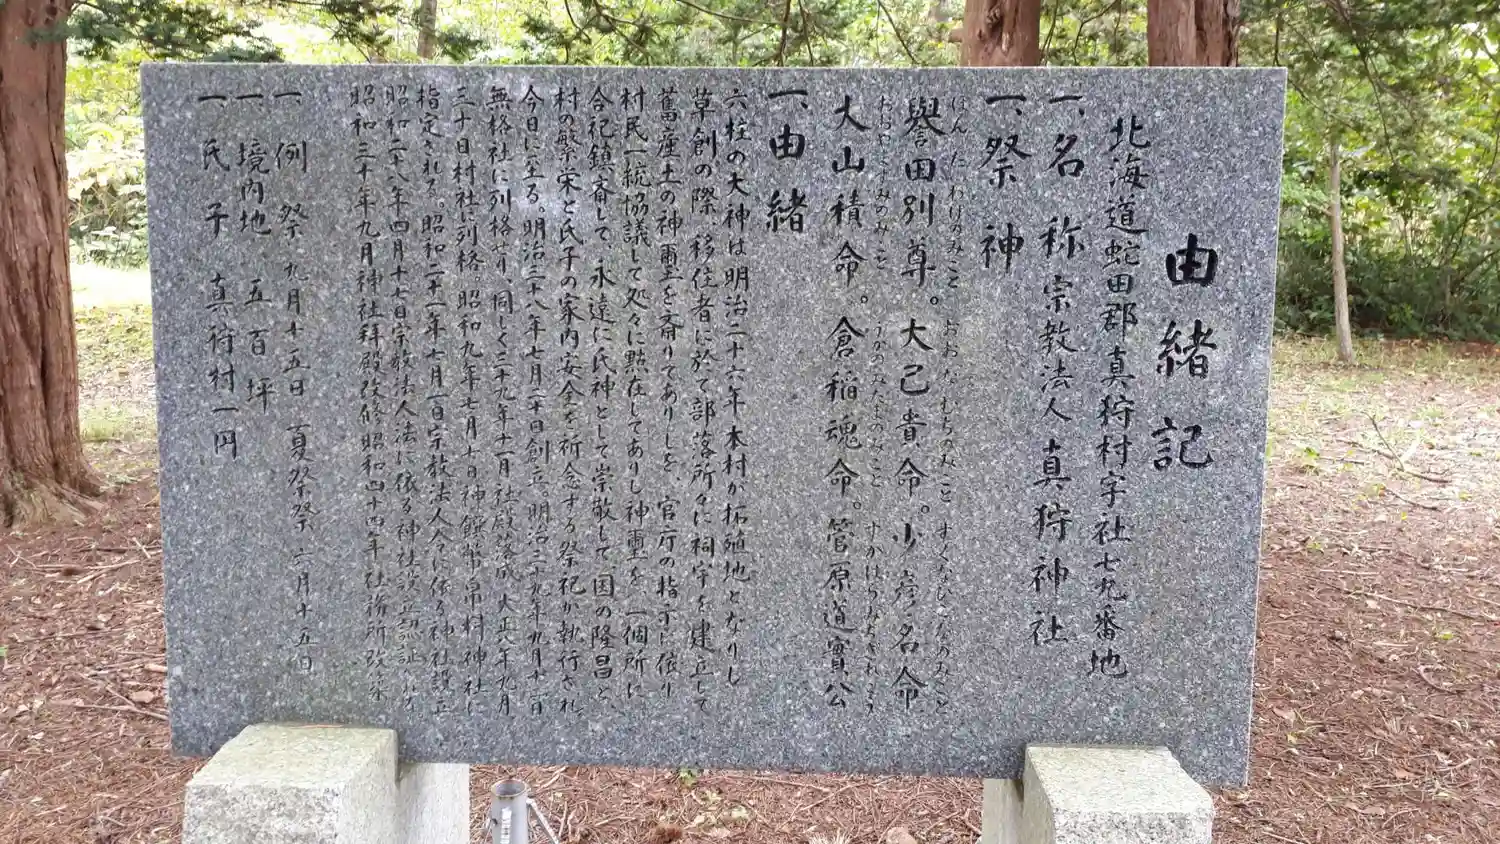 由緒記
北海道蛇田郡真狩村字社七九番地
一、名称 宗教法人 真狩神社
一、祭神
ほんたわけのみこと おおなむちのみこと すくなひこなのみこと
譽田別尊。大己貴命。少彦名命
おおやまずみのみこと うかのみたまのみこと すがはらみちざねこう
大山積命。倉稲魂命。管原道實公
一、由緒
六柱の大神は明治二十六年本村が拓殖地となりし
草創の際、移住者に於て部落所々に祠宇を建立して
舊産土の神璽を斎りてありしを、官庁の指示に依り
村民一統協議して処々に點在してありし神璽を、一個所に
合祀鎮斎して、永遠に氏神として崇敬して、国の隆昌と、
村の繁栄と氏子の家内安全を祈念する祭祀が執行され、
今日に至る。明治三十八年七月二十日創立。明治三十九年九月十二日
無格社に列格せり、同じく三十九年十一月社殿落成、大正八年九月
三十日村社に列格、昭和九年七月十日神饌幣帛料神社に
指定される。昭和二十一年七月一日宗教法人令に依る神社設立
昭和二十八年四月十七日宗教法人法に依る神社設立認証される。
昭和三十年九月神社拝殿改修昭和四十四年社務所改築
一、例祭 九月十五日 夏祭祭 六月十五日
一、境内地 五百坪
一、氏子 真狩村一円